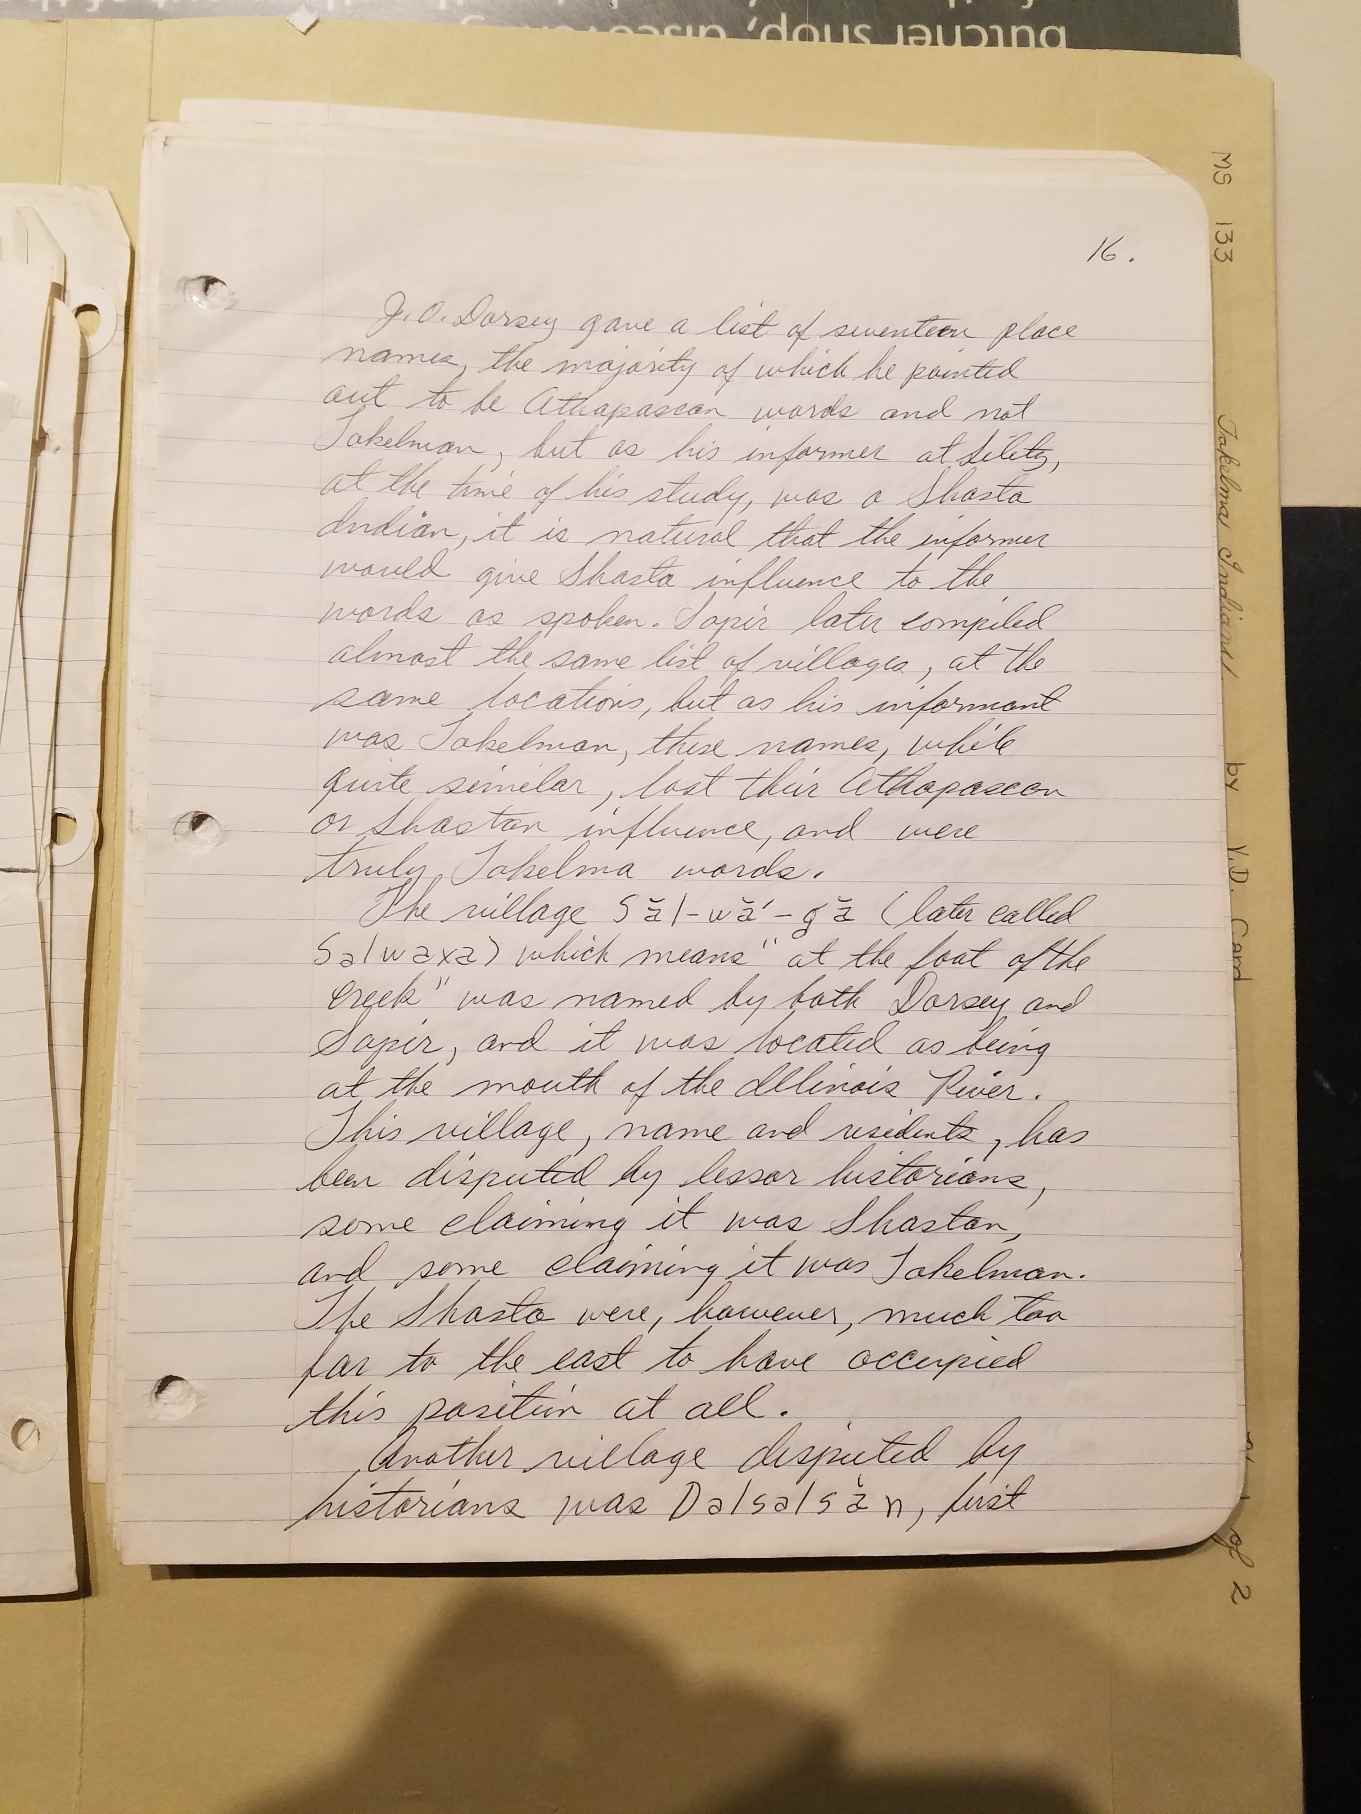 butcher shop, discover
MS 133 Takelma Indians by V.D. Card
of 2
16.
J.O. Dorsey gave a list of seventeen place
names, the majority of which he pointed
out to be Athapascan words and not
Takelman, but as his informer at Siletz,
at the time of his study, was a Shasta
Indian, it is natural that the informer
would give Shasta influence to the
words as spoken. Sapir later compiled
almost the same list of villages, at the
same locations, but as his informant
was Takelman, these names, while
quite similar, lost their Athapascan
or Shastan influence, and were
truly Takelma words.
The village Să|-wă'-gă (later called
Sa|waxa) which means "at the foot of the
creek" was named by both Dorsey and
Sapir, and it was located as being
at the mouth of the Illinois River.
This village, name and residents, has
been disputed by lessor historians,
some claiming it was Shastan,
and some claiming it was Takelman.
The Shasta were, however, much too
far to the east to have occupied
this position at all.
Another village disputed by
historians was Da|sa|săn, first